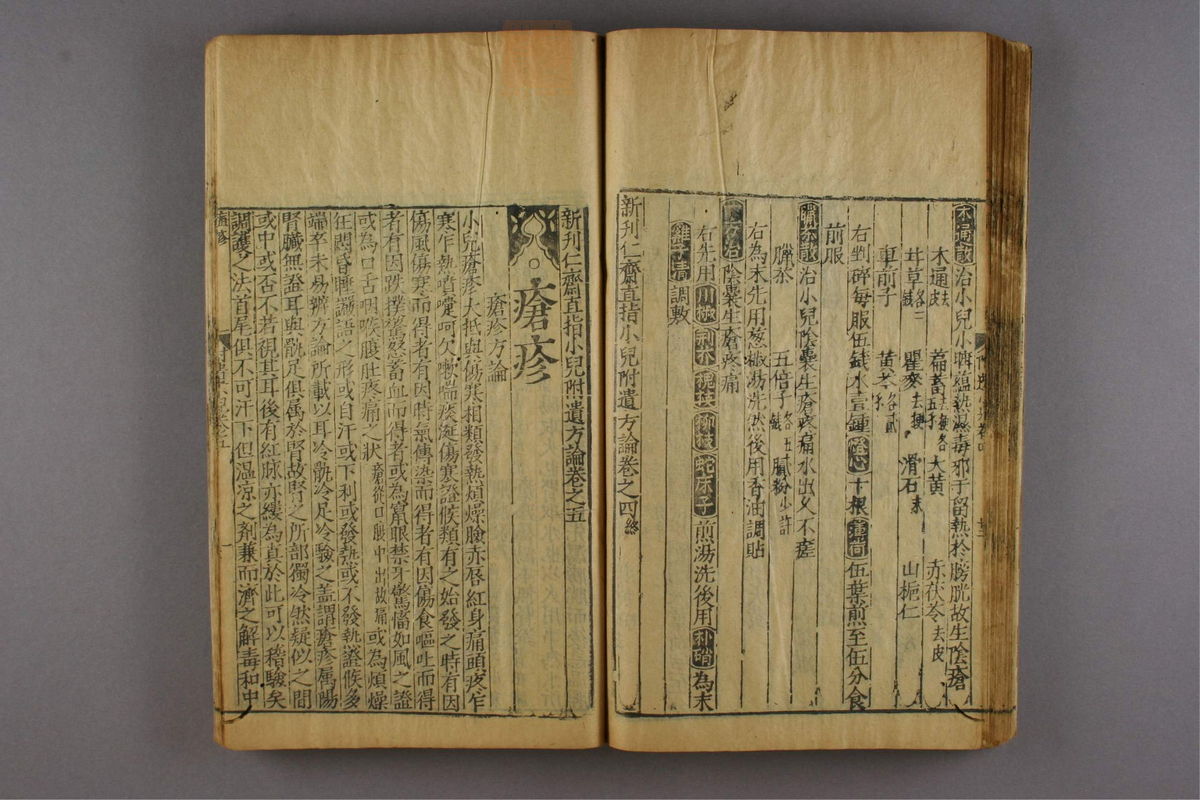 木通散治小兒小腑蘊熱濕毒邪干留熱於膀胱故生陰瘡
木通 去皮 萹畜 去梗各五錢 大黃 赤茯苓 去皮
甘草 各二錢 瞿麥 去梗 滑石 末 山梔仁
車前子 黃芩 各貳錢
右剉碎每服伍錢水壹鍾燈心十根薄荷伍葉煎至伍分食
前服
臘茶散治小兒陰囊生瘡疼痛水出久不瘥
臘茶 五倍子 各五錢 膩粉 少許
右為末先用葱椒湯洗然後用香油調貼
治陰囊生瘡疼痛
右先用川椒荊芥槐枝柳枝蛇床子煎湯洗後用朴硝為末
雞子清調敷
新刊仁齋直指小兒附遺方論卷之四 終
新刊仁齋直指小兒附遺方論卷之五
瘡疹
瘡疹方論
小兒瘡疹大抵與傷寒相類發熱煩燥臉赤唇紅身痛頭疼乍
寒乍熱噴嚏呵欠嗽喘痰涎傷寒證候類有之始發之時有因
傷風傷寒而得者有因時氣傳染而得者有因傷食嘔吐而得
者有因跌撲驚恐蓄血而得者或為竄眼禁牙驚搐如風之證
或為口舌咽喉腹肚疼痛之狀 瘡從口腹中出故痛 或為煩燥
狂悶昏睡譫語之形或自汗或下利或發熱或不發熱證候多
端卒未易辨方論所載以耳冷骩冷足冷驗之蓋謂瘡疹屬陽
腎臟無證耳與骩足俱属於腎故腎之所部獨冷然疑似之間
或中或否不若視其耳後有紅脉赤縷為真於此可以稽驗矣
調護之法首尾俱不可汗下但溫凉之劑兼而濟之解毒和中